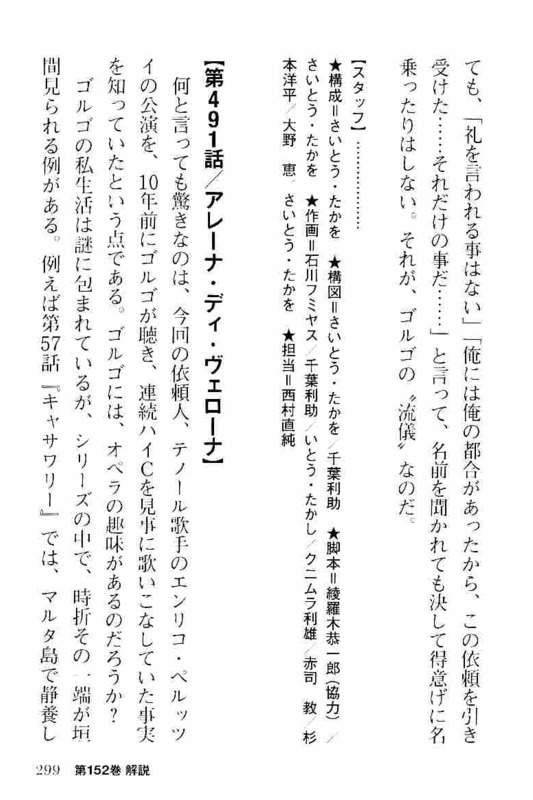 ても、「礼を言われる事はない」「俺には俺の都合があったから、この依頼を引き
受けた……それだけの事だ……」と言って、名前を聞かれても決して得意げに名
乗ったりはしない。それが、ゴルゴの〝流儀〟なのだ。
【スタッフ】…………………
★構成＝さいとう・たかを　★構図＝さいとう・たかを／千葉利助　★脚本＝綾羅木恭一郎（協力）／
さいとう・たかを　★作画＝石川フミヤス／千葉利助／いとう・たかし／クニムラ利雄／赤司　教／杉
本洋平／大野　恵　さいとう・たかを　★担当＝西村直純
【第491話／アレーナ・ディ・ヴェローナ】
何と言っても驚きなのは、今回の依頼人、テノール歌手のエンリコ・ペルッツ
イの公演を、10年前にゴルゴが聴き、連続ハイCを見事に歌いこなしていた事実
を知っていたという点である。ゴルゴには、オペラの趣味があるのだろうか？
ゴルゴの私生活は謎に包まれているが、シリーズの中で、時折その一端が垣
間見られる例がある。例えば第57話『キャサワリー』では、マルタ島で静養し
299　第152巻 解説